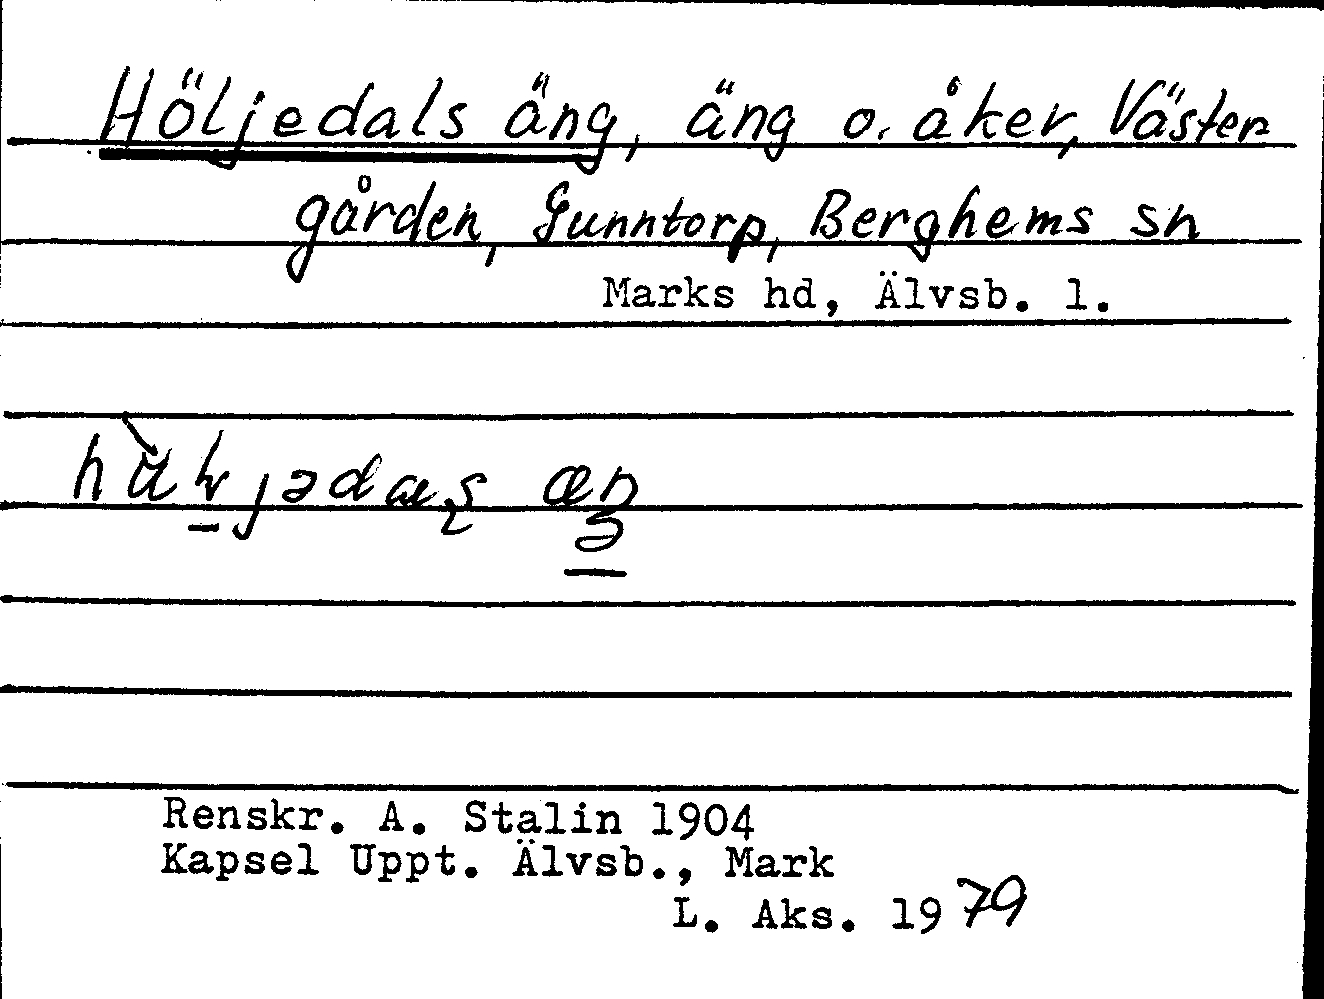 Höljedals äng, äng o. åker, Väster
gården, Gunntorp, Berghems sn
Marks hd, Älvsb. l.
Renskr. A. Stalin 1904
Kapsel Uppt. Älvsb., Mark
L. Aks. 1979